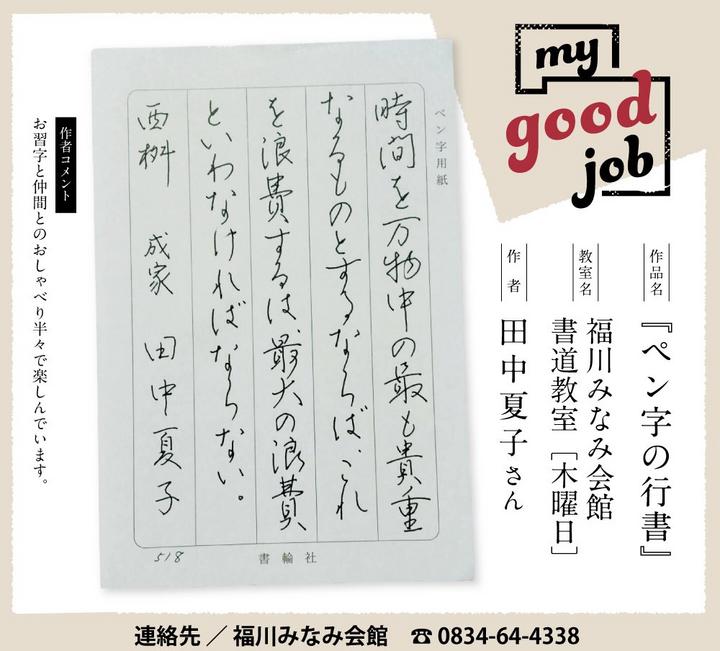 my
good
job
作品名
『ペン字の行書』
教室名
福川みなみ会館
書道教室［木曜日］
作者
田中夏子さん
ペン字用紙
時間を万物中の最も貴重
なるものとするならば、これ
を浪費するは、最大の浪費
といわなければならない。
西桝 成家 田中夏子
518
書輪社
作者コメント
お習字と仲間とのおしゃべり半々で楽しんでいます。
連絡先／福川みなみ会館 ☎0834-64-4338